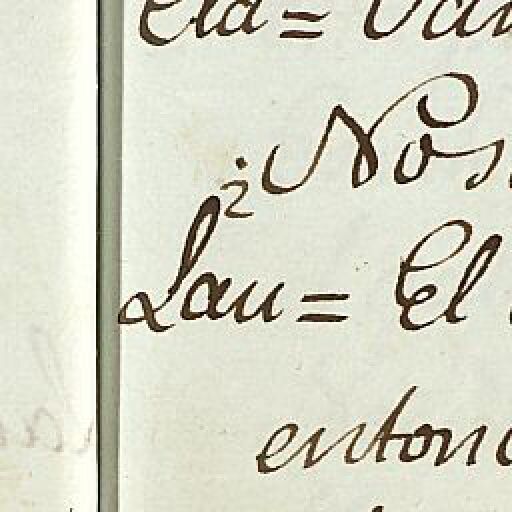 Cla=
¿Nos
Lau= El
enton